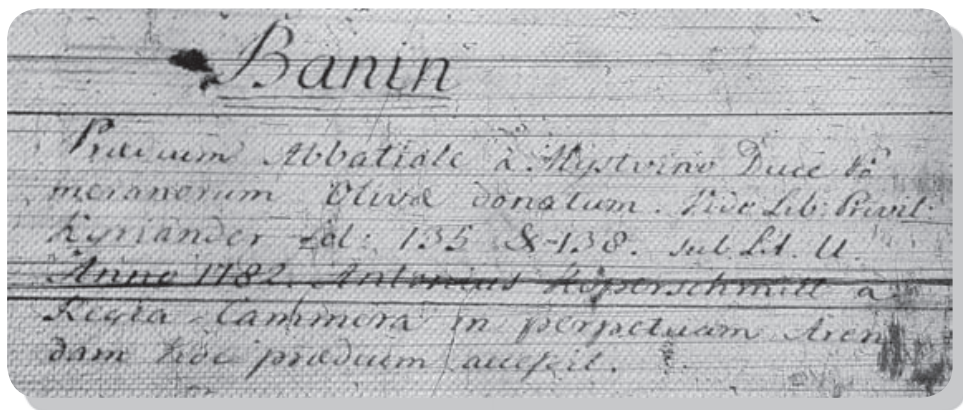 Banin
Prædium Abbatiale à Mystvino Duce Po
meranorum Olivæ donatum. Vide Lib: Privil:
Kyriander fol: 135 & 138. sub Lit. U.
Anno 1782. Antonius Köperschmitt a
Regia Cammera in perpetuam Aren
dam hoc prædium accepit.